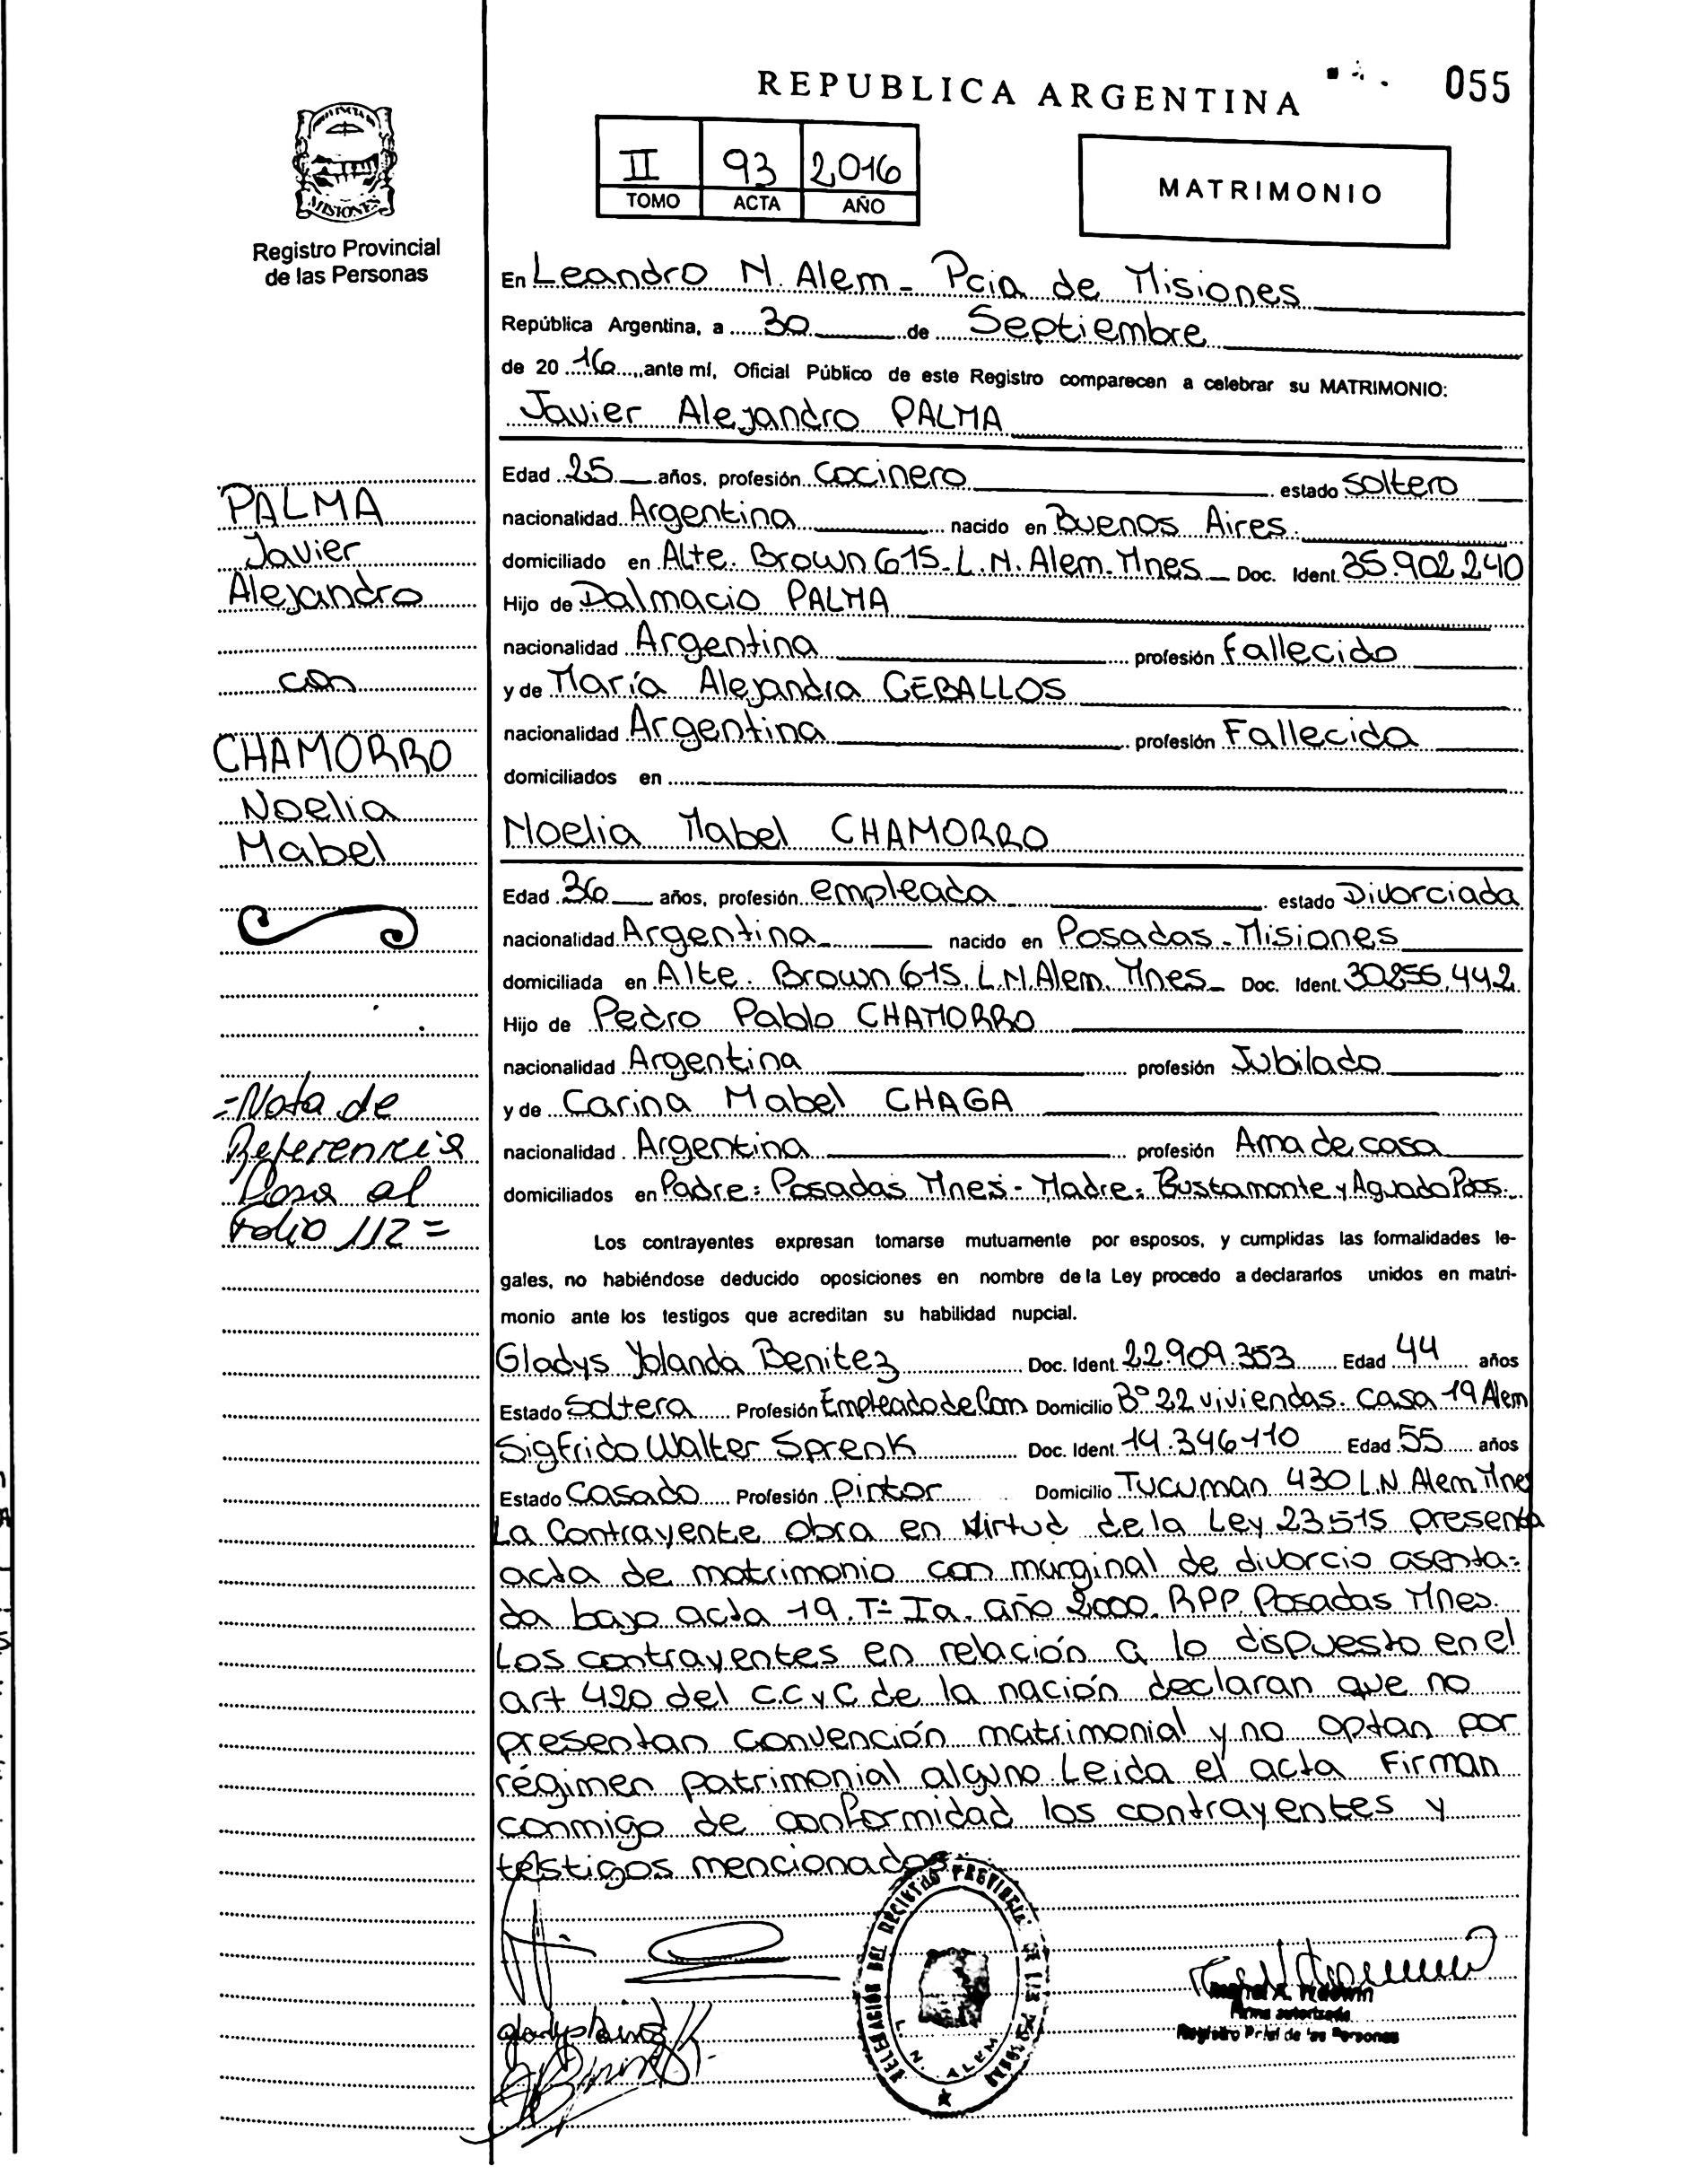 REPUBLICA ARGENTINA
055
II 93 2016
TOMO ACTA AÑO
MATRIMONIO
PROVINCIA DE
MISIONES
Registro Provincial
de las Personas
PALMA
Javier
Alejandro
con
CHAMORRO
Noelia
Mabel
=Nota de
Referencia
Pasa al
Folio 112=
En Leandro N. Alem - Pcia de Misiones
República Argentina, a 30 de Septiembre
de 20 16, ante mí, Oficial Público de este Registro comparecen a celebrar su MATRIMONIO:
Javier Alejandro PALMA
Edad 25 años, profesión Cocinero estado Soltero
nacionalidad Argentina nacido en Buenos Aires.
domiciliado en Alte. Brown 615. L.N. Alem. Mnes Doc. Ident. 35.902.240
Hijo de Dalmacio PALMA
nacionalidad Argentina profesión Fallecido
y de María Alejandra CEBALLOS
nacionalidad Argentina profesión Fallecida
domiciliados en
Noelia Mabel CHAMORRO
Edad 36 años, profesión empleada estado Divorciada
nacionalidad Argentina nacido en Posadas - Misiones
domiciliada en Alte. Brown 615. L.N. Alem. Mnes Doc. Ident. 30.255.442
Hijo de Pedro Pablo CHAMORRO
nacionalidad Argentina profesión Jubilado
y de Carina Mabel CHAGA
nacionalidad Argentina profesión Ama de casa
domiciliados en Padre: Posadas Mnes - Madre: Bustamante y Aguado Pdas.
Los contrayentes expresan tomarse mutuamente por esposos, y cumplidas las formalidades le-
gales, no habiéndose deducido oposiciones en nombre de la Ley procedo a declararlos unidos en matri-
monio ante los testigos que acreditan su habilidad nupcial.
Gladys Yolanda Benitez Doc. Ident. 22.909.353 Edad 44 años
Estado Soltera Profesión Empleado de Com Domicilio Bº 22 viviendas. Casa 19 Alem
Sigfrido Walter Sprenk Doc. Ident. 14.346.110 Edad 55 años
Estado Casado Profesión Pintor Domicilio Tucuman 430 L.N Alem Mnes
La Contrayente obra en virtud de la Ley 23515 presenta
acta de matrimonio con marginal de divorcio asenta=
da bajo acta 19. Tº Ia. año 2000. RPP. Posadas Mnes.
Los contrayentes en relación a lo dispuesto en el
art 420 del C.C y C de la nación declaran que no
presentan convención matrimonial y no optan por
régimen patrimonial alguno. Leida el acta Firman
conmigo de conformidad los contrayentes y
testigos mencionados.
DELEGACION DEL REGISTRO PROVINCIAL DE LAS PERSONAS
L. N. ALEM
Firma autorizada
Registro Prial de las Personas